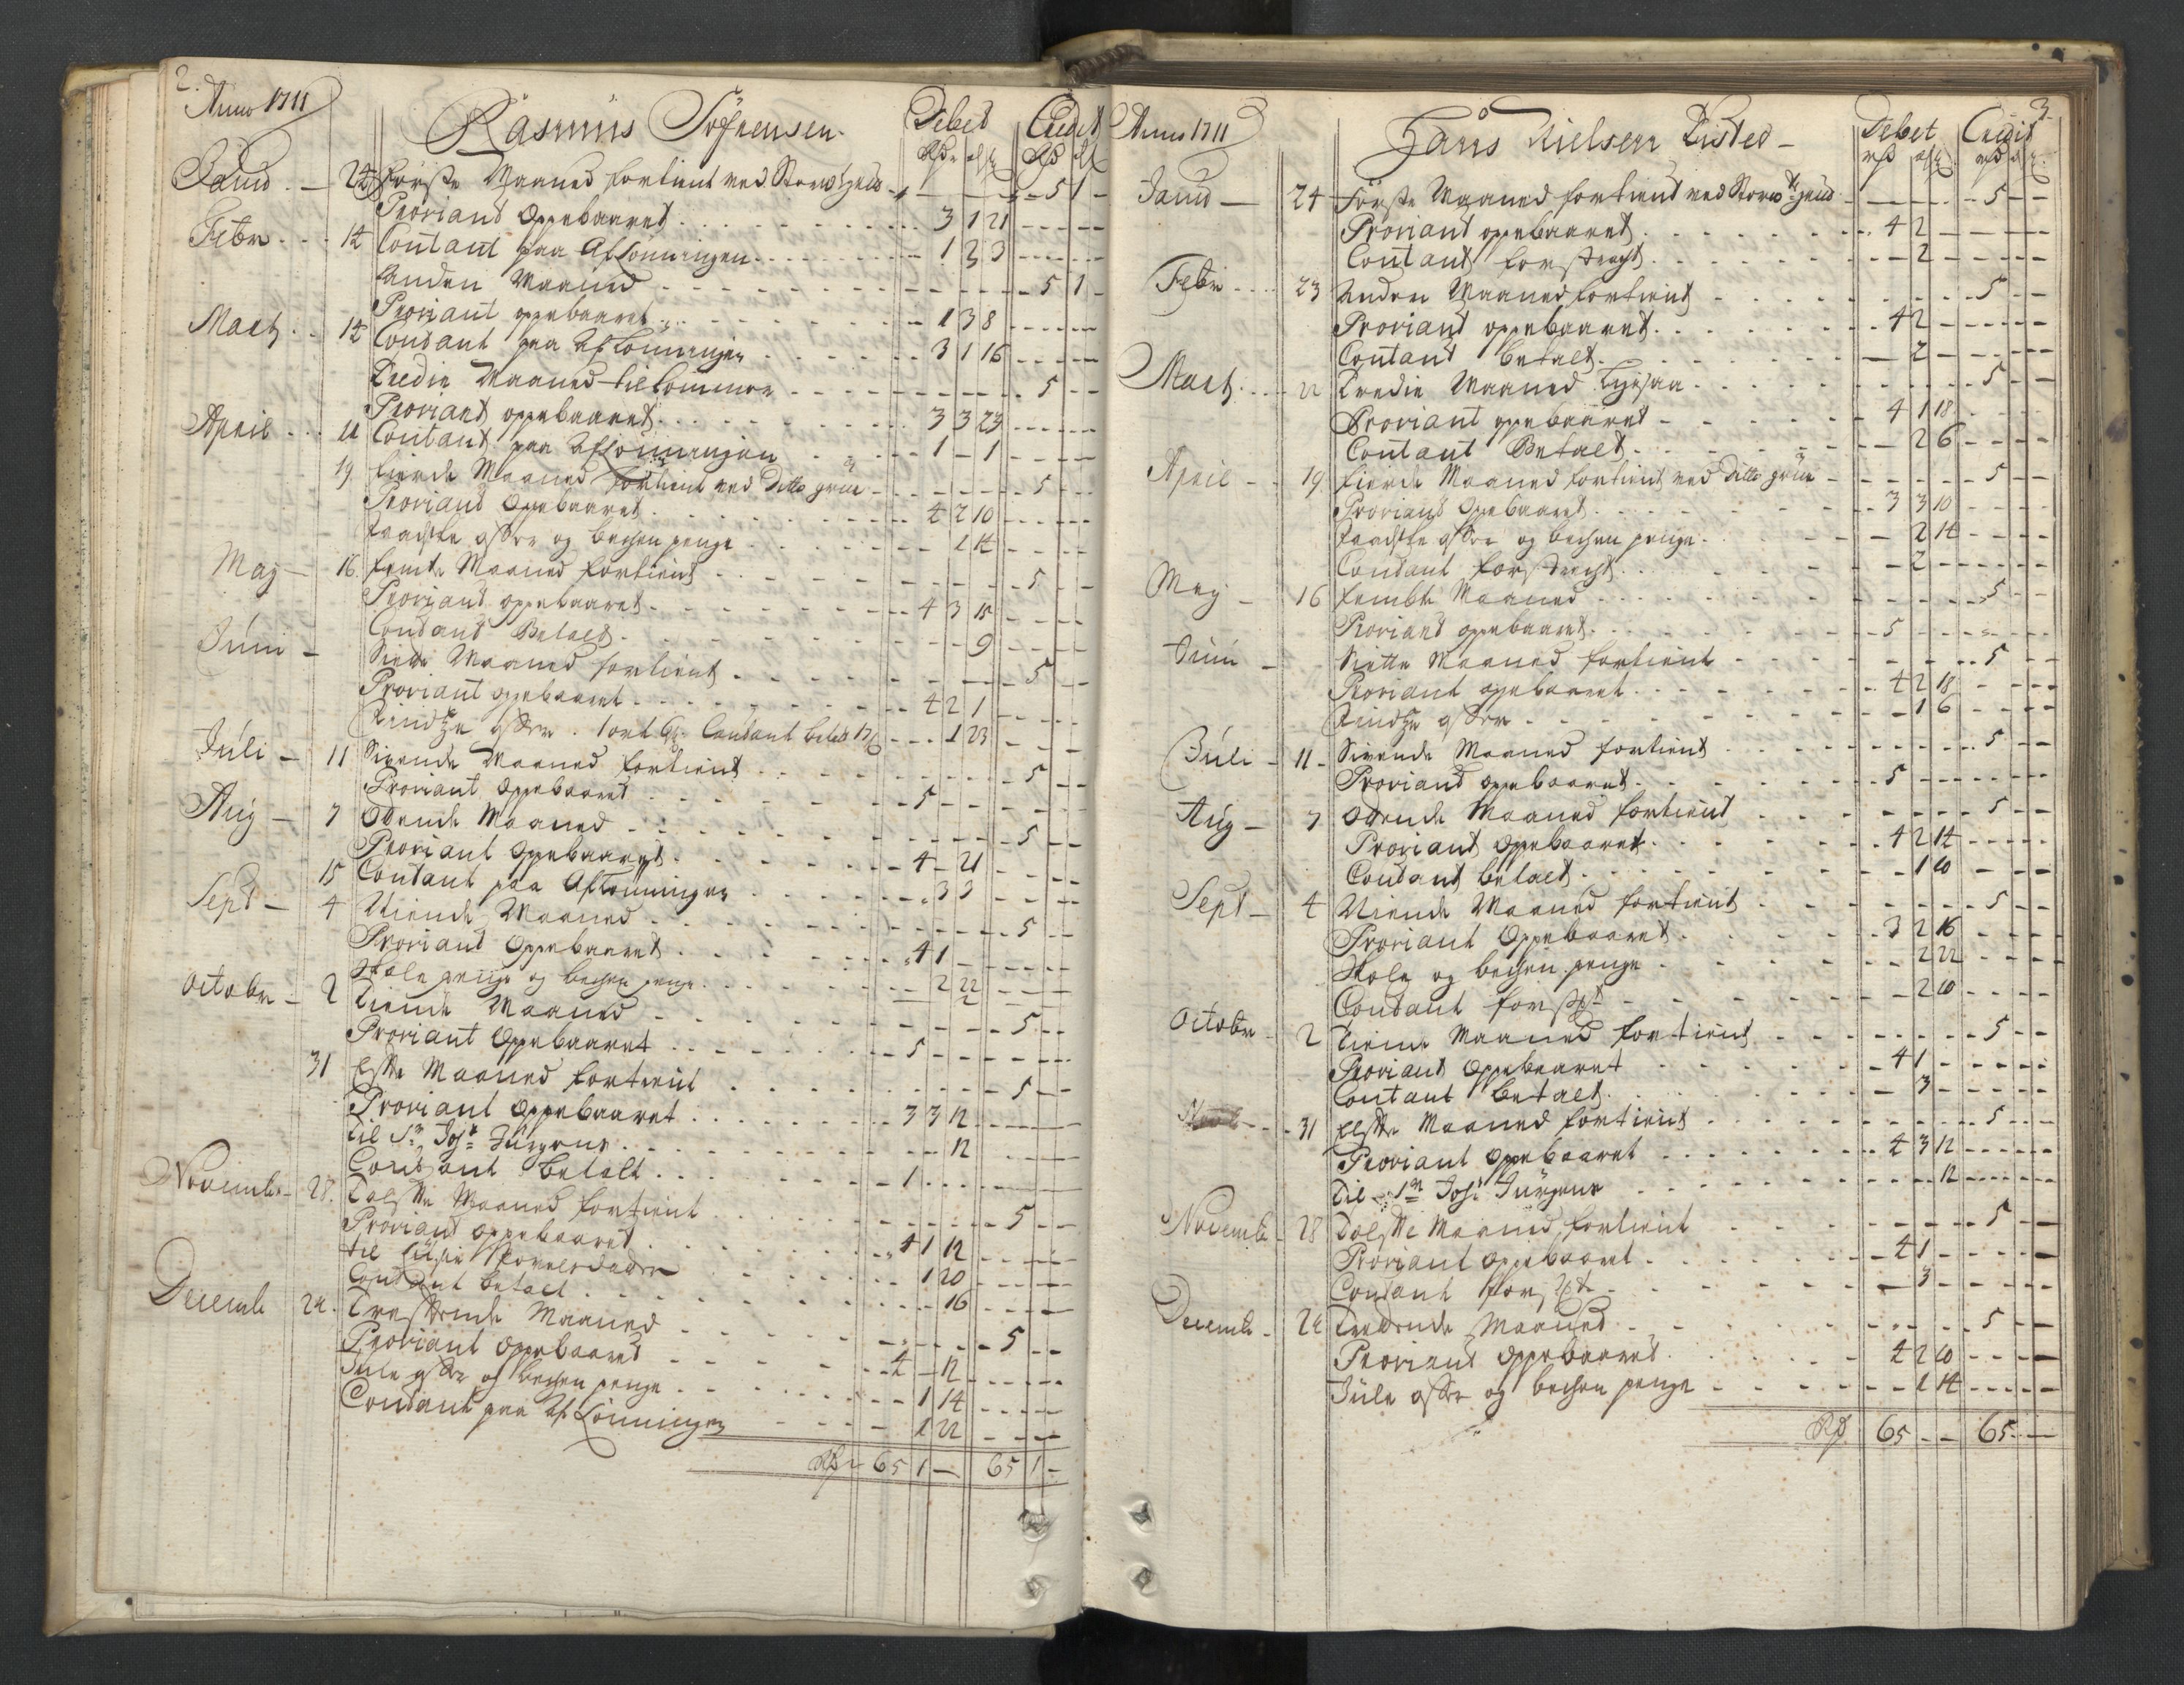 2.
Anno 1711
Rasmus Sörrensen
Debet Credit
Rdr ort ß Rd ort ß
Janu. — 24 Förste Maaned fortient ved Storvotz grube - - - - 5 1 -
Proviand Oppebaaret . . . . 3 1 21 - - -
Febr. . . 14 Contant paa Aflönningen . . . . 1 2 3 - - -
Anden Maaned - - - - 5 1 -
Proviant oppebaaret . . . . 1 3 8 - - -
Marty . . 14 Contant paa Aflönningen . . . . 3 1 16 - - -
Tredie Maaned tilkommer - - - - 5 - -
Proviant oppebaaret . . . . 3 3 23 - - -
April . . . 11 Contant paa Aflönningen . . 1 - 1 - - -
19 fierde Maaned fortient ved Ditto grue - - - - 5 - -
Proviand Oppebaaret . . . . 4 2 10 - - -
Paaske offer og bechen penge . . . . - 1 14 - - -
Maj — 16. femte Maaned fortient - - - - 5 - -
Proviand oppebaaret . . . . 4 3 15 - - -
Contant Betalt . . . . - - 9 - - -
Juni — Siette Maaned fortient . . . . 5 - -
Proviant oppebaaret . . . . 4 2 1 - - -
offer . 1 ort 6 ß Contant betalt 17 ß - - 1 23 - - -
Juli — 11 Sivende Maaned fortient . . . . 5 - -
Proviant Oppebaaret . . . . 5 - - - - -
Aug — 7 Ottende Maaned - - - - 5 - -
Proviant Oppebaaret . . . . 4 - 21 - - -
15 Contant paa Aflönningen . . . . - 3 3 - - -
Sept — 4 Niende Maaned . . . . 5 - -
Proviant Oppebaaret . . . . 4 1 - - - -
Skole penge og bechen penge . . . . - 2 22 - - -
Octobr — 2 Tiende Maaned - - - - 5 - -
Proviant Oppebaaret . . . . 5 - - - - -
31 Elfte Maaned fortient . . . . 5 - -
Proviant Oppebaaret . . . . 3 3 12 - - -
Til Sr. Joh: Jürgens . . . . - - 12 - - -
Contant betalt . . . . 1 - - - - -
Novembr — 28. Tolfte Maaned fortient . . . . 5 - -
Proviant oppebaaret . . . . 4 1 12 - - -
til . . . . 1 20 - - -
Contant betalt . . . . - - 16 - - -
Decembr 24. Trettende Maaned - - - - 5 - -
Proviant Oppebaaret - - - 4 - 12 - - -
Jule offer og bechen penge . . . . - 1 14 - - -
Contant paa Aflönningen - - - - 1 22 - - -
Rdr 65 1 - 65 1 -
3
Anno 1711
Hans Nielsen Listed —
Debet Credit
rd ort ß rd ort ß
Janu — 24 Förste Maaned fortient ved Storvotz grube - - - - 5 - -
Proviant oppebaaret . . . . 4 2 - - - -
Contant forstragt . . . . - 2 - - - -
Febr . . . 23 Anden Maaned fortient . . . . 5 - -
Proviant oppebaaret . . . . 4 2 - - - -
Contant betalt . . . . - 2 - - - -
Marty . . . 22 Tredie Maaned Ligesaa . . . . 5 - -
Proviant oppebaaret - - - - 4 1 18 - - -
Contant Betalt . . . . - 2 6 - - -
April — 19 fierde Maaned fortient ved Ditto grue - - - - 5 - -
Proviand Oppebaaret . . . . 3 3 10 - - -
Paaske offer og bechen penge . . . . - 2 14 - - -
Contant forstragt . . . . - 2 - - - -
Maj — 16 femte Maaned . . . . 5 - -
Proviant oppebaaret . . . . 5 - - - - -
Juni — Siette Maaned fortient . . . . 5 - -
Proviant oppebaaret . . . . 4 2 18 - - -
offer . . . . - 1 6 - - -
Juli — 11 - Sivende Maaned fortient . . . . 5 - -
Proviand oppebaaret . . . . 5 - - - - -
Aug — 7 Ottende Maaned fortient . . . . 5 - -
Proviant oppebaaret . . . . 4 2 14 - - -
Contant betalt . . . . - 1 10 - - -
Sept — 4 Niende Maaned fortient . . . . 5 - -
Proviant Oppebaaret . . . . 3 2 16 - - -
Skole og bechen penge . . . . - 2 22 - - -
Contant forst - - - - 2 10 - - -
Octobr — 2 Tiende Maaned fortient . . . . 5 - -
Proviant Oppebaaret . . . . 4 1 - - - -
Contant betalt . . . . - 3 - - - -
31 Elfte Maaned fortient . . . . 5 - -
Proviant Oppebaaret . . . . 4 3 12 - - -
Til Sr. Joh: Jürgens . . . . - - 12 - - -
Novembr — 28 Tolfte Maaned fortient . . . . 5 - -
Proviant oppebaaret . . . . 4 1 - - - -
Contant forst - - - - 3 - - - -
Decembr — 24 Trettende Maaned . . . . 5 - -
Proviant Oppebaaret . . . . 4 2 10 - - -
Jule offer og bechen penge - - - - 1 14 - - -
Rd 65 - - 65 - -